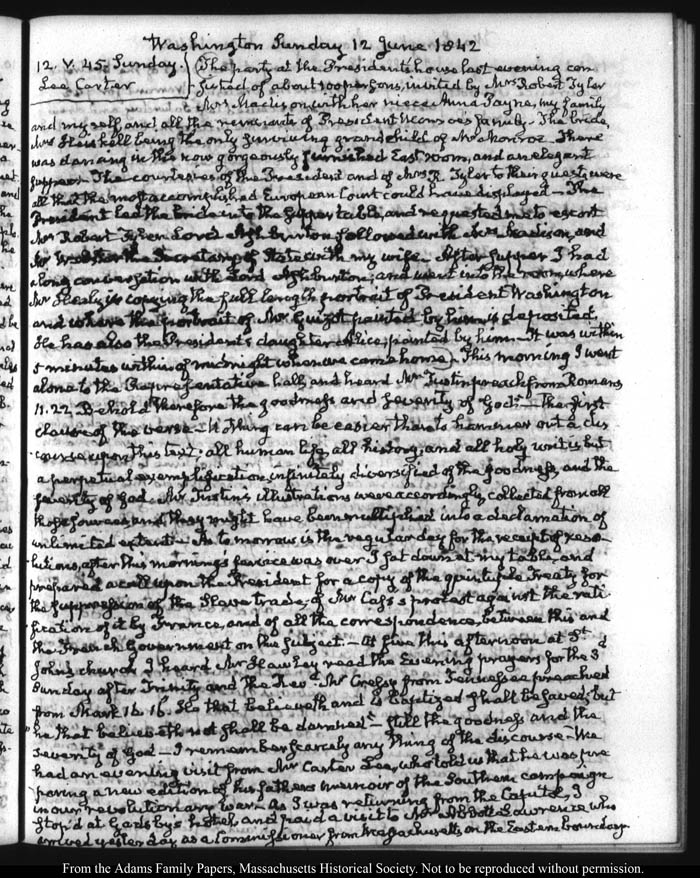 Washington Sunday 12 June 1842
12. V. 45. Sunday. The party at the President's house last evening con
Lee Carter sisted of about 100 persons, invited by Mrs Robert Tyler
Mrs Madison with her niece Anna Payne, my family
and myself, and all the remnants of President Monroe's family. The bride,
Mrs Heiskell being the only surviving grandchild of Mr Monroe. There
was dancing in the now gorgeously furnished East room, and an elegant
supper. The courtesies of the President and of Mrs R. Tyler to their guests were
all that the most accomplished European Court could have displayed — The
President led the bride into the supper table, and requested me to escort
Mrs Robert Tyler. Lord Ashburton followed with Mrs Madison, and
Mr Webster the Secretary of State with my wife. After supper I had
a long conversation with Lord Ashburton; and went into the room where
Mr Healy is copying the full length portrait of President Washington
and where the portrait of Mr Guizot painted by him is deposited.
He has also the President's daughter Alice, painted by him — It was within
5 minutes of midnight when we came home — This morning I went
alone to the Representative hall, and heard Mr Tustin preach from Romans
11. 22. Behold therefore the goodness and severity of God — The first
clause of the verse — Nothing can be easier than to hammer out a dis
course upon this text. all human life, all history, and all holy writ is but
a perpetual exemplification, infinitely diversified of the goodness, and the
severity of God. Mr Tustin's illustrations were accordingly collected from all
those sources and they might have been multiplied into a declamation of
unlimited extent — As to morrow is the regular day for the receipt of reso
lutions, after this morning's service was over I sat down at my table, and
prepared a call upon the President for a copy of the quintuple Treaty for
the suppression of the Slave trade, of Mr Cass's protest against the rati
fication of it by France, and of all the correspondence, between this and
the French Government on the subject. — At five this afternoon at St
John's church I heard Mr Hawley read the Evening prayers for the 3d
Sunday after Trinity and the Revd Mr Cressy from Tennessee preached
from Mark 16. 16. He that believeth and is baptized shall be saved; but
he that believeth not shall be damned — still the goodness and the
severity of God — I remember scarcely any thing of the discourse — We
had an evening visit from Mr Carter Lee, who told us that he was pre
paring a new edition of his father's memoir of the Southern campaign
in our revolutionary war. As I was returning from the Capitol, I
stop'd at Gadsby's hotel, and paid a visit to Mr Abbott Lawrence who
arrived yesterday as a Commissioner from Massachusetts on the Eastern boundary
From the Adams Family Papers, Massachusetts Historical Society. Not to be reproduced without permission.